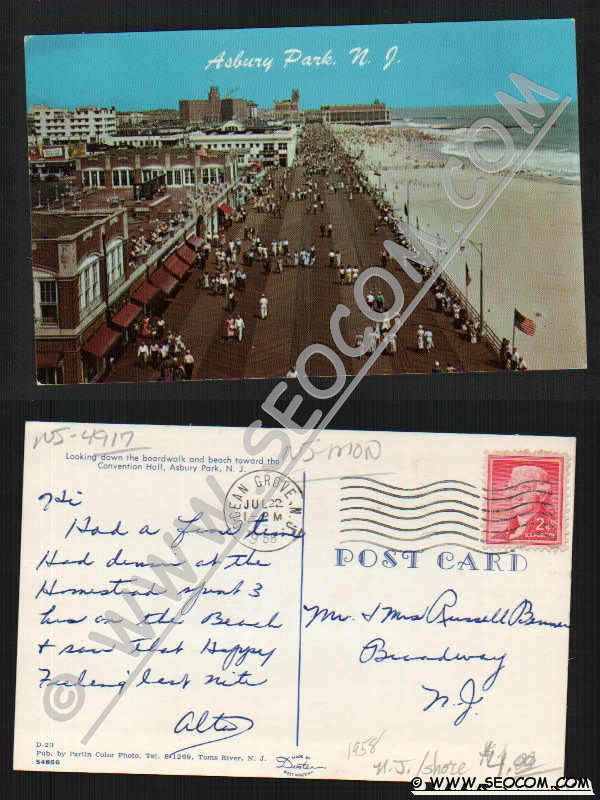 Asbury Park, N. J.
© WWW.SEOCOM.COM
NJ-4917
NJ MON
Looking down the boardwalk and beach toward the
Convention Hall, Asbury Park, N. J.
OCEAN GROVE, N.J.
JUL 22
1-PM
1958
2¢
POST CARD
Hi
Had a fine time
Had dinner at the
Homestead spent 3
hrs on the Beach
& saw that Happy
Feeling last nite
Alta
Mr. & Mrs Russell
Broadway
N.J.
D-23
Pub. by Partin Color Photo, Tel. 81299, Toms River, N. J.
54856
MADE BY
Dexter
WEST NYACK, N.Y.
1958
N.J./shore
$4.00
© WWW.SEOCOM.COM
© WWW.SEOCOM.COM